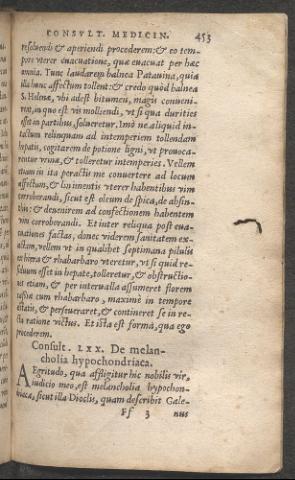 CONSVLT. MEDICIN. 453
resoluendi & aperiendi procederem: & eo tem-
pore vterer euacuatione, quæ euacuat per hæc
omnia. Tunc laudarem balnea Patauina, quia
illa hunc affectum tollent: & credo quòd balnea
S. Helenæ, vbi adest bitumen, magis conueni-
rent, in quo est vis molliendi, vt si qua durities
esset in partibus, solueretur. Imò ne aliquid in-
tactum relinquam ad intemperiem tollendam
hepatis, cogitarem de potione ligni, vt prouoca-
rentur vrinæ, & tolleretur intemperies. Vellem
etiam in ita peractis me conuertere ad locum
affectum, & linimentis vterer habentibus vim
corroborandi, sicut est oleum de spica, de absin-
thio: & deuenirem ad confectionem habentem
vim corroborandi. Et inter reliqua post eua-
cuationes factas, donec viderem sanitatem ex-
actam, vellem vt in qualibet septimana pilulis
ex hiera & rhabarbaro vteretur, vt si quid re-
siduum esset in hepate, tolleretur, & obstructio-
nes etiam, & per interualla assumeret florem
cassiæ cum rhabarbaro, maximè in tempore
æstatis, & perseueraret, & contineret se in re-
cta ratione victus. Et ista est forma, qua ego
procederem.
Consult. LXX. De melan-
cholia hypochondriaca.
AEgritudo, qua affligitur hic nobilis vir,
iudicio meo, est melancholia hypochon-
driaca, sicut illa Dioclis, quam describit Gale-
Ff 3 nus